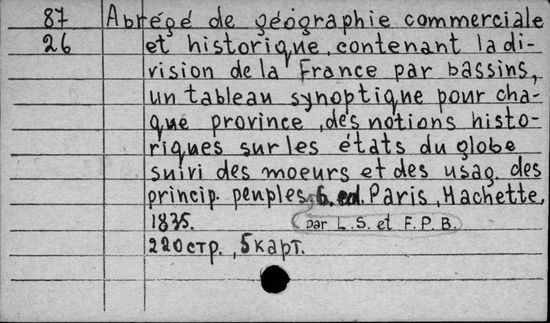 87 Abrégé de géographie commerciale
26 et historique, contenant la di-
vision de la France par bassins,
un tableau synoptique pour cha-
que province, des notions histo-
riques sur les états du globe
suivi des moeurs et des usag. des
princip. peuples, 6. ed. Paris, Hachette,
1835. par L. S. et F. P. B.
220 стр., 5 карт.